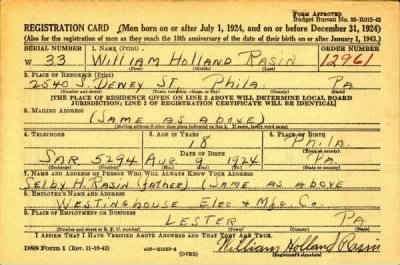 FORM APPROVED
Budget Bureau No. 33-R012-42
REGISTRATION CARD (Men born on or after July 1, 1924, and on or before December 31, 1924)
(Also for the registration of men as they reach the 18th anniversary of the date of their birth on or after January 1, 1943.)
SERIAL NUMBER 1. NAME (Print) ORDER NUMBER
W 33 William Holland Rasin 12961
(First) (Middle) (Last)
2. PLACE OF RESIDENCE (Print)
2540 S. Dewey St. Phila. Pa
(Number and street) (Town, township, village, or city) (County) (State)
[THE PLACE OF RESIDENCE GIVEN ON LINE 2 ABOVE WILL DETERMINE LOCAL BOARD
JURISDICTION; LINE 2 OF REGISTRATION CERTIFICATE WILL BE IDENTICAL]
3. MAILING ADDRESS
(Same as above)
[Mailing address if other than place indicated on line 2. If same, insert word same]
4. TELEPHONE 5. AGE IN YEARS 6. PLACE OF BIRTH
18 Phila.
DATE OF BIRTH
SAR 5294 Aug 9 1924 Pa.
7. NAME AND ADDRESS OF PERSON WHO WILL ALWAYS KNOW YOUR ADDRESS
Selby H. Rasin (father) (same as above
8. EMPLOYER'S NAME AND ADDRESS
Westinghouse Elec & Mfg. Co.
9. PLACE OF EMPLOYMENT OR BUSINESS
Lester Pa
(Number and street or R. F. D. number) (Town) (County) (State)
I AFFIRM THAT I HAVE VERIFIED ABOVE ANSWERS AND THAT THEY ARE TRUE.
DSS Form 1 (Rev. 11-16-42) (OVER) William Holland Rasin
(Registrant's signature)